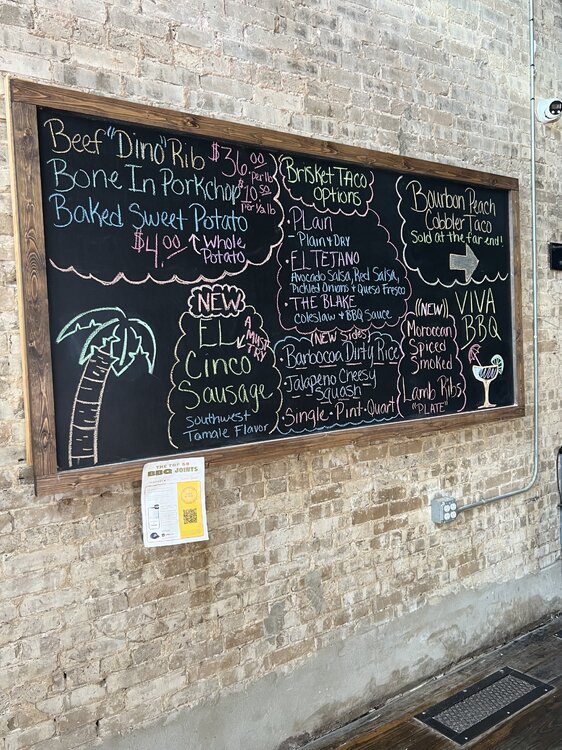 Beef "Dino" Rib $36.00 per lb
Bone In Porkchop $10.50 Per ½ lb
Baked Sweet Potato
$4.00 ↑ Whole
Potato
Brisket Taco
Options
• Plain
- Plain & Dry
• EL TEJANO
Avocado Salsa, Red Salsa,
Pickled Onions & Queso Fresco
• THE BLAKE
Coleslaw & BBQ Sauce
Bourbon Peach
Cobbler Taco
Sold at the far end!
NEW
EL
A MUST TRY
Cinco
Sausage
Southwest
Tamale Flavor
(New Sides)
Barbocoa Dirty Rice
Jalapeno Cheesy
Squash
Single-Pint-Quart
((NEW))
Moroccan
Spiced
Smoked
Lamb Ribs
"PLATE"
VIVA
BBQ
THE TOP 50
BBQ JOINTS